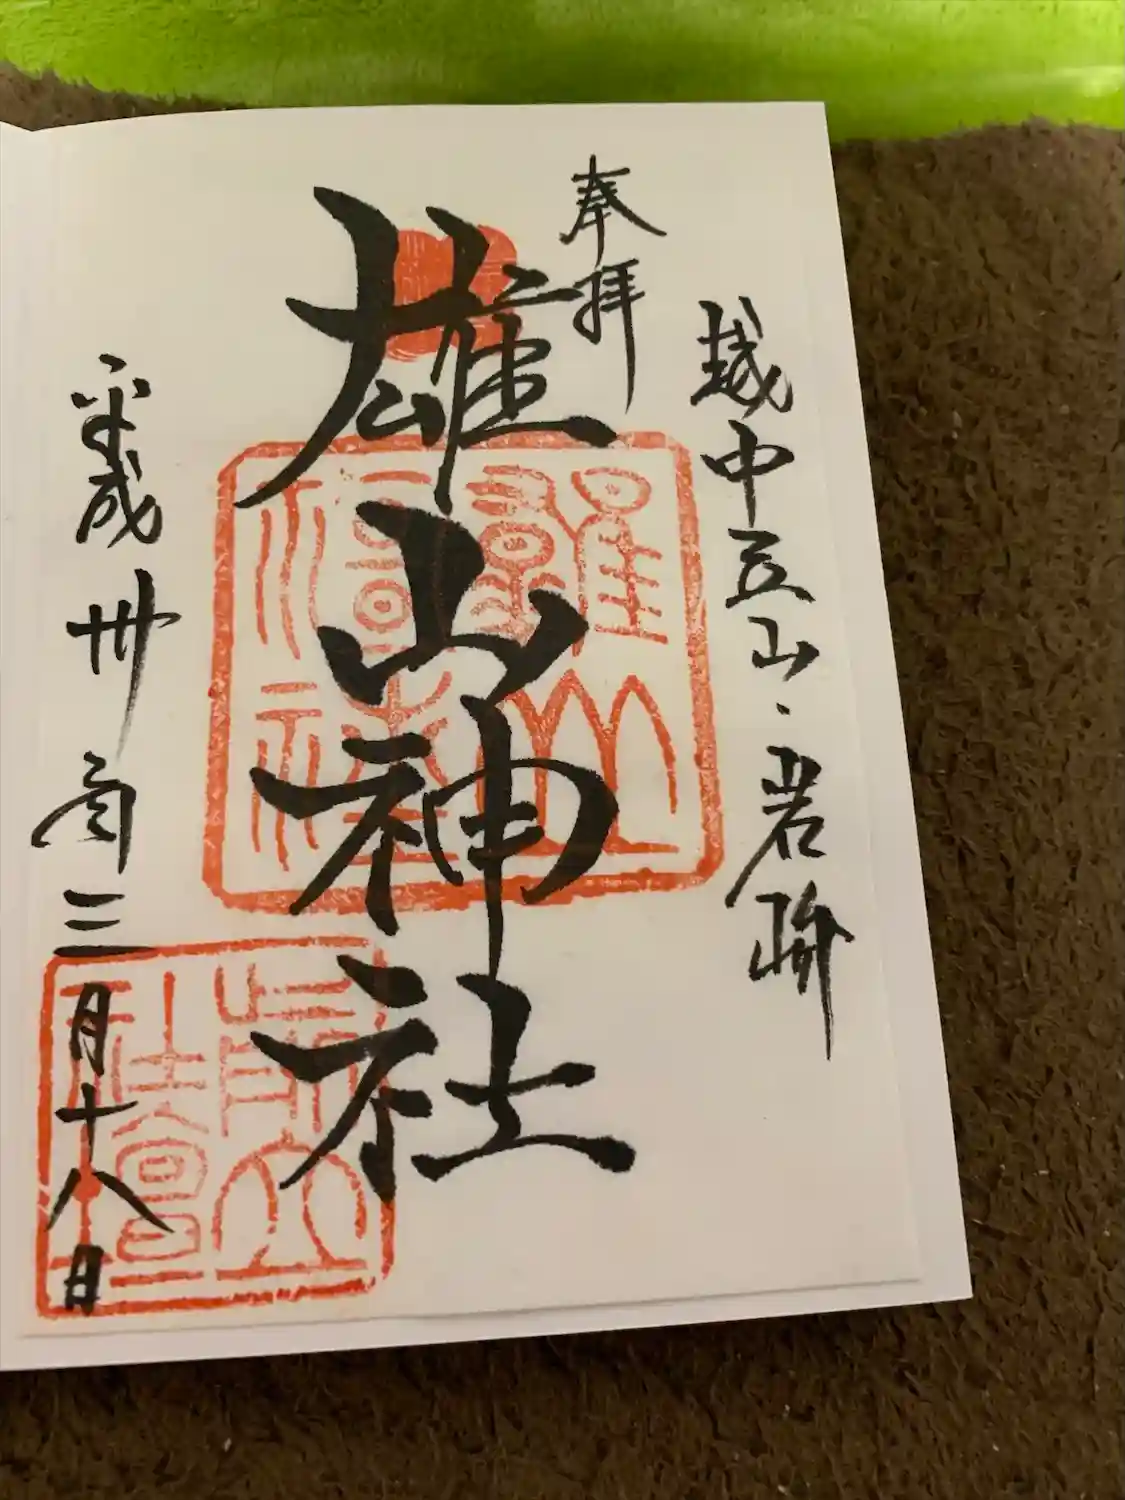 越中立山・岩峅
奉拝
雄山神社
平成卅年三月十八日
雄山
神社
前立
社壇